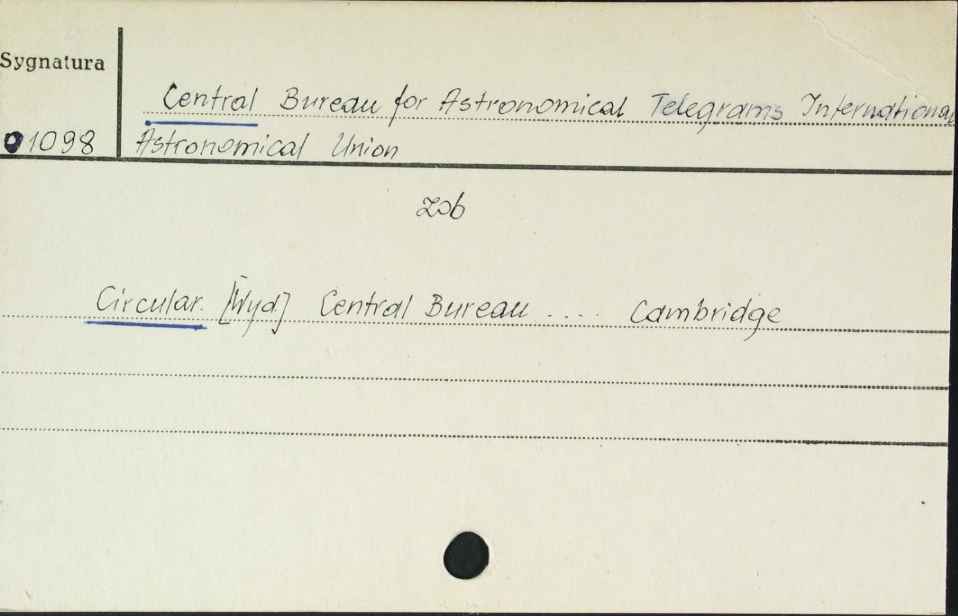 Sygnatura
Central Bureau for Astronomical Telegrams International
01098 Astronomical Union
zob
Circular. [Wyd] Central Bureau .... Cambridge